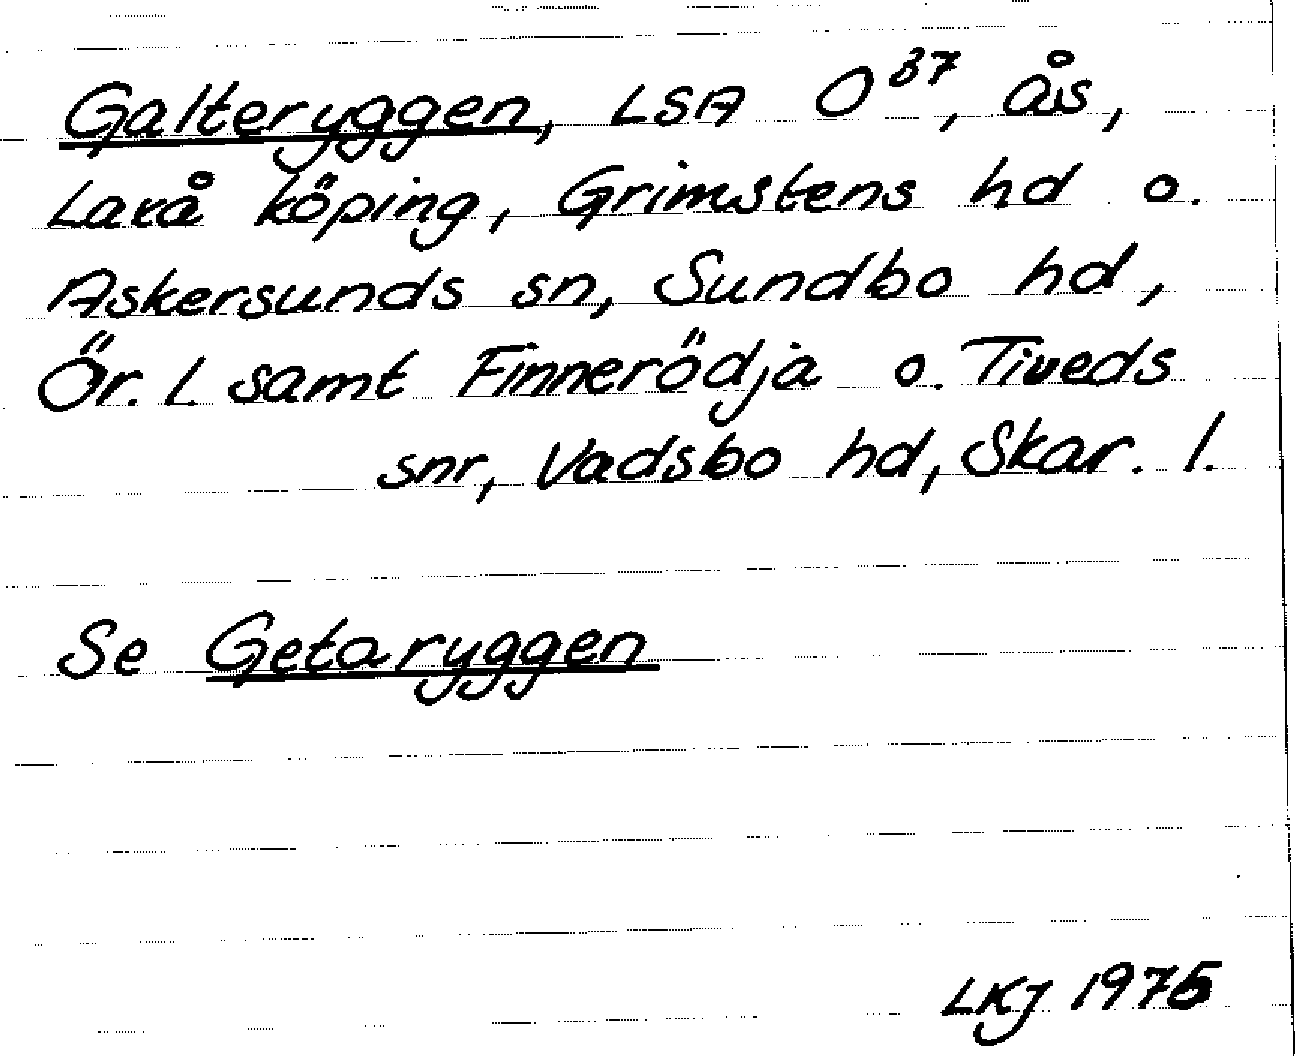 Galteryggen, LSA O³⁷, ås,
Laxå köping, Grimstens hd o.
Askersunds sn, Sundbo hd,
Ör. l. samt Finnerödja o. Tiveds
snr, Vadsbo hd, Skar. l.
Se Getaryggen
LKJ 1975